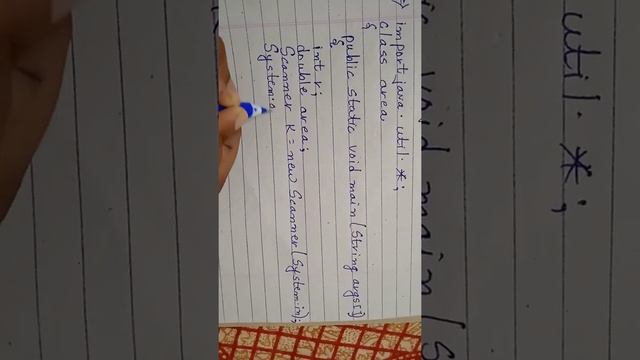 import java.util.*;
class area
{
public static void main(String args[])
{
int r;
double area;
Scanner K = new Scanner(System.in);
System.o